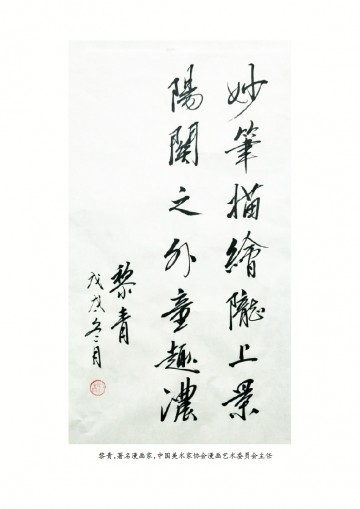 妙筆描繪隴上景
陽關之外童趣濃
黎青
戊戌冬月
黎青，著名漫画家，中国美术家协会漫画艺术委员会主任